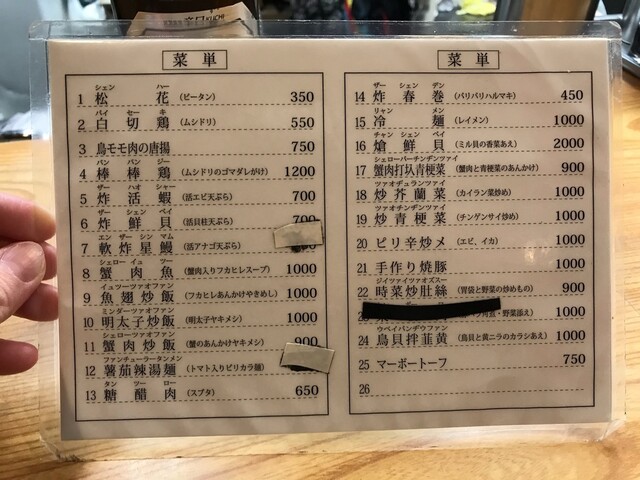 菜単
シェン ハー
1 松花 (ピータン) 350
パイ セー キ
2 白切鶏 (ムシドリ) 550
3 鳥モモ肉の唐揚 750
バン バン ジー
4 棒棒鶏 (ムシドリのゴマダレがけ) 1200
ザー ハオ シャー
5 炸活蝦 (活エビ天ぷら) 700
ザー シェン ペイ
6 炸鮮貝 (活貝柱天ぷら) 700
エン ザー シン マム
7 軟炸星鰻 (活アナゴ天ぷら)
シェロー イュ ツー
8 蟹肉魚 (蟹肉入りフカヒレスープ) 1000
イュツーツァオファン
9 魚翅炒飯 (フカヒレあんかけやきめし) 1000
ミンダーツァオファン
10 明太子炒飯 (明太子ヤキメシ) 1000
シェローツァオファン
11 蟹肉炒飯 (蟹のあんかけヤキメシ) 900
ファンチューラータンメン
12 薯茄辣湯麺 (トマト入りピリカラ麺)
タン ツー ロー
13 糖醋肉 (スブタ) 650
菜単
ザー シェン デン
14 炸春巻 (パリパリハルマキ) 450
リャン メン
15 冷麺 (レイメン) 1000
チャン シェン ペイ
16 熗鮮貝 (ミル貝の香菜あえ) 2000
シェローパーチンデンツァイ
17 蟹肉打圦青梗菜 (蟹肉と青梗菜のあんかけ) 900
ツァオヂュランツァイ
18 炒芥蘭菜 (カイラン菜炒め) 1000
ツァオチンデンツァイ
19 炒青梗菜 (チンゲンサイ炒め) 1000
20 ピリ辛炒メ (エビ、イカ) 1000
21 手作り焼豚 1000
ジイツァイツァオズスー
22 時菜炒肚絲 (胃袋と野菜の炒めもの) 900
角煮・野菜添え) 1000
ウペイバンヂウファン
24 鳥貝拌韮黄 (鳥貝と黄ニラのカラシあえ) 1000
25 マーボートーフ 750
26